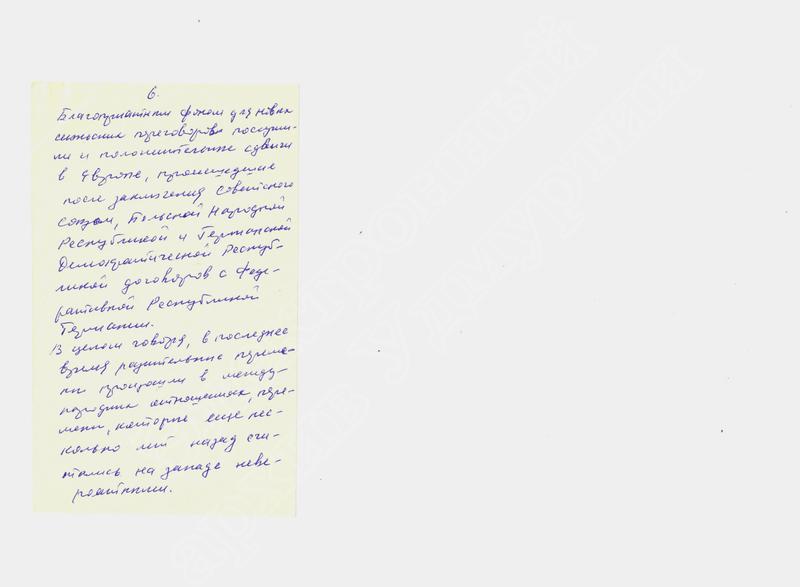 6.
Благоприятным фоном для новых
сложных переговоров послужи-
ли и положительные сдвиги
в Европе, происшедшие
после заключения Советского
союзом, Польской Народной
Республикой и Германской
Демократической Респуб-
ликой договоров с Феде-
ративной Республикой
Германии.
В целом говоря, в последнее
время разительные переме-
ны произошли в между-
народных отношениях, пере-
мены, которые еще нес-
колько лет назад счи-
тались на западе неве-
роятными.